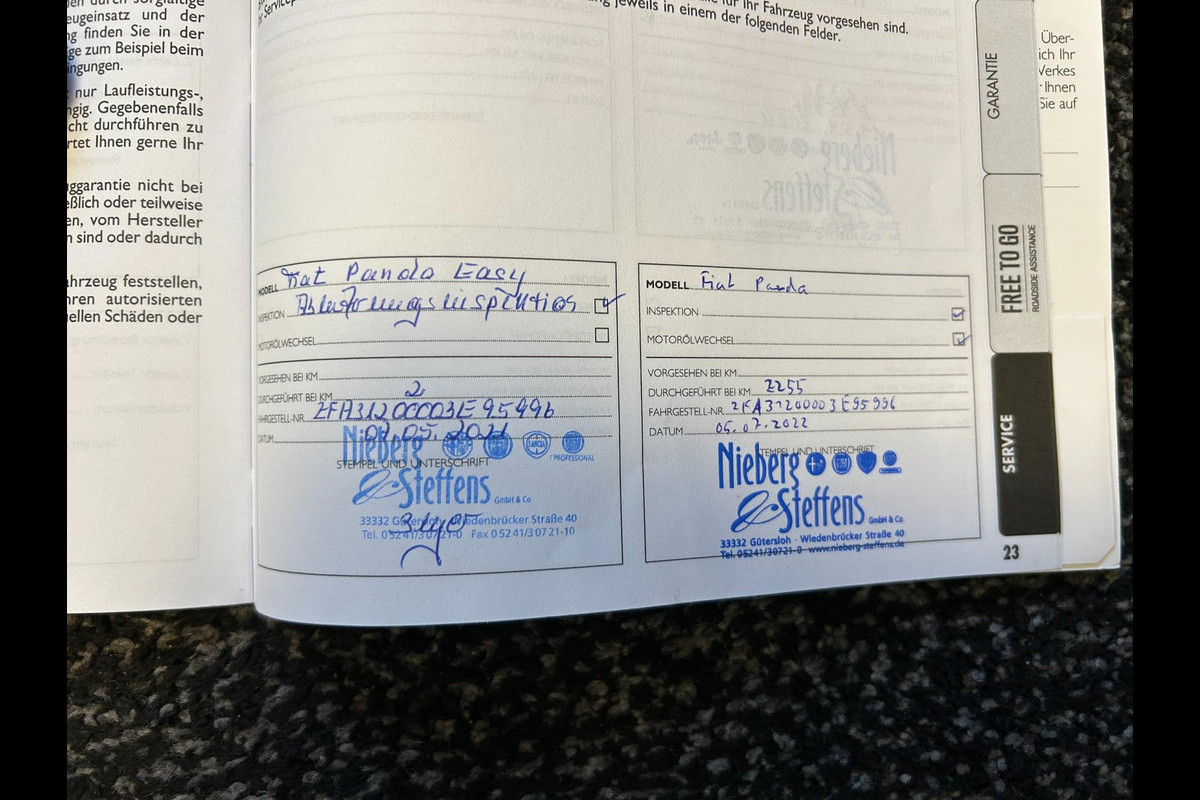 eugeinsatz und der
finden Sie in der
zum Beispiel beim
ingungen.
nur Laufleistungs-,
ngig. Gegebenenfalls
cht durchführen zu
rtet Ihnen gerne Ihr
ggarantie nicht bei
eßlich oder teilweise
en, vom Hersteller
n sind oder dadurch
ahrzeug feststellen,
hren autorisierten
uellen Schäden oder
für Ihr Fahrzeug vorgesehen sind.
jeweils in einem der folgenden Felder.
MODELL Fiat Panda Easy
INSPEKTION
MOTORÖLWECHSEL
VORGESEHEN BEI KM
DURCHGEFÜHRT BEI KM 2
FAHRGESTELL-NR. ZFA31200003E95996
DATUM 07.05.2021
STEMPEL UND UNTERSCHRIFT
Nieberg
LANCIA
PROFESSIONAL
& Steffens GmbH & Co
33332 Gütersloh · Wiedenbrücker Straße 40
Tel. 05241/30721-0 Fax 05241/30721-10
MODELL Fiat Panda
INSPEKTION
MOTORÖLWECHSEL
VORGESEHEN BEI KM
DURCHGEFÜHRT BEI KM 2255
FAHRGESTELL-NR. ZFA31200003E95996
DATUM 05.07.2022
STEMPEL UND UNTERSCHRIFT
Nieberg
& Steffens GmbH & Co
33332 Gütersloh · Wiedenbrücker Straße 40
Tel. 05241/30721-0 www.nieberg-steffens.de
GARANTIE
FREE TO GO
ROADSIDE ASSISTANCE
SERVICE
23
Über-
ich Ihr
Verkes
Ihnen
Sie auf